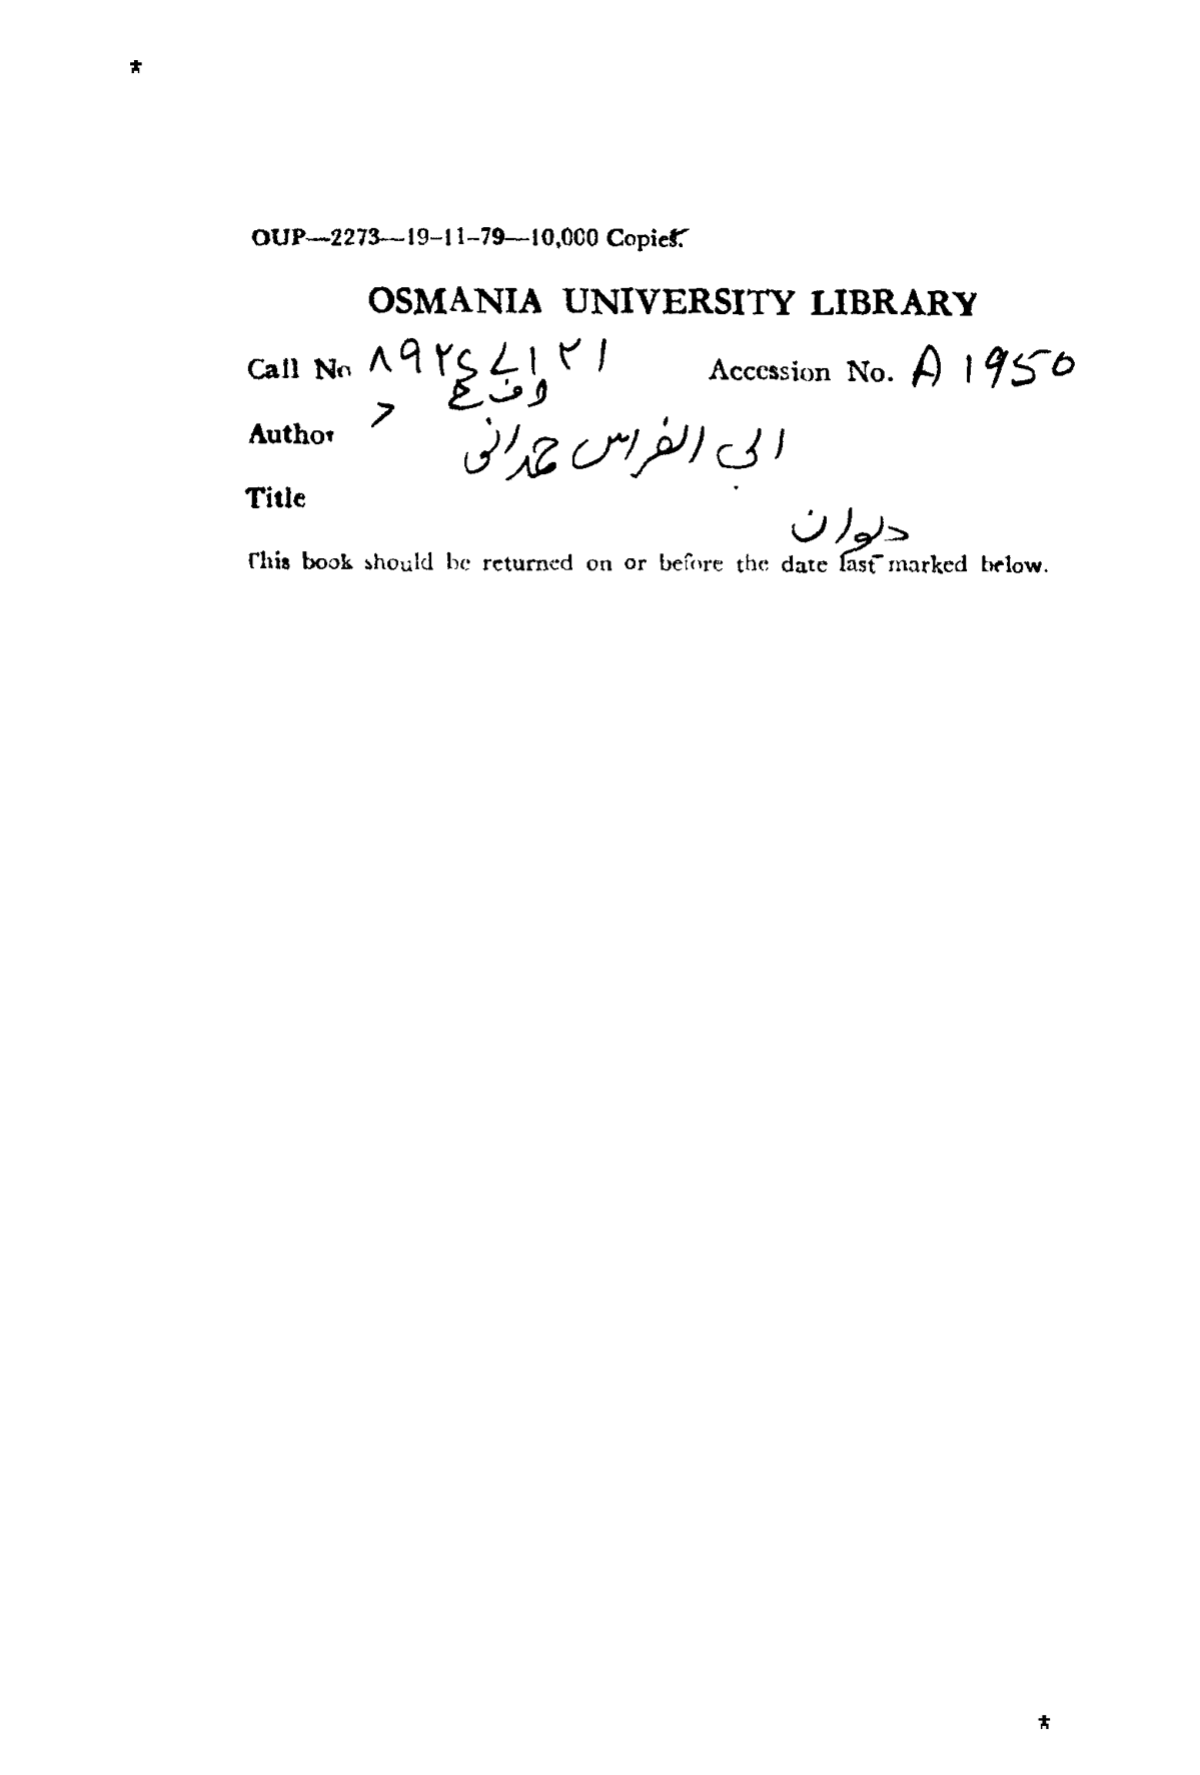 OUP—2273—19-11-79—10,000 Copies.
OSMANIA UNIVERSITY LIBRARY
Call No ٨٩٢٤١٢١ Accession No. A 1950
Author ابي الفراس حمدانی
Title
ديوان
This book should be returned on or before the date last marked below.